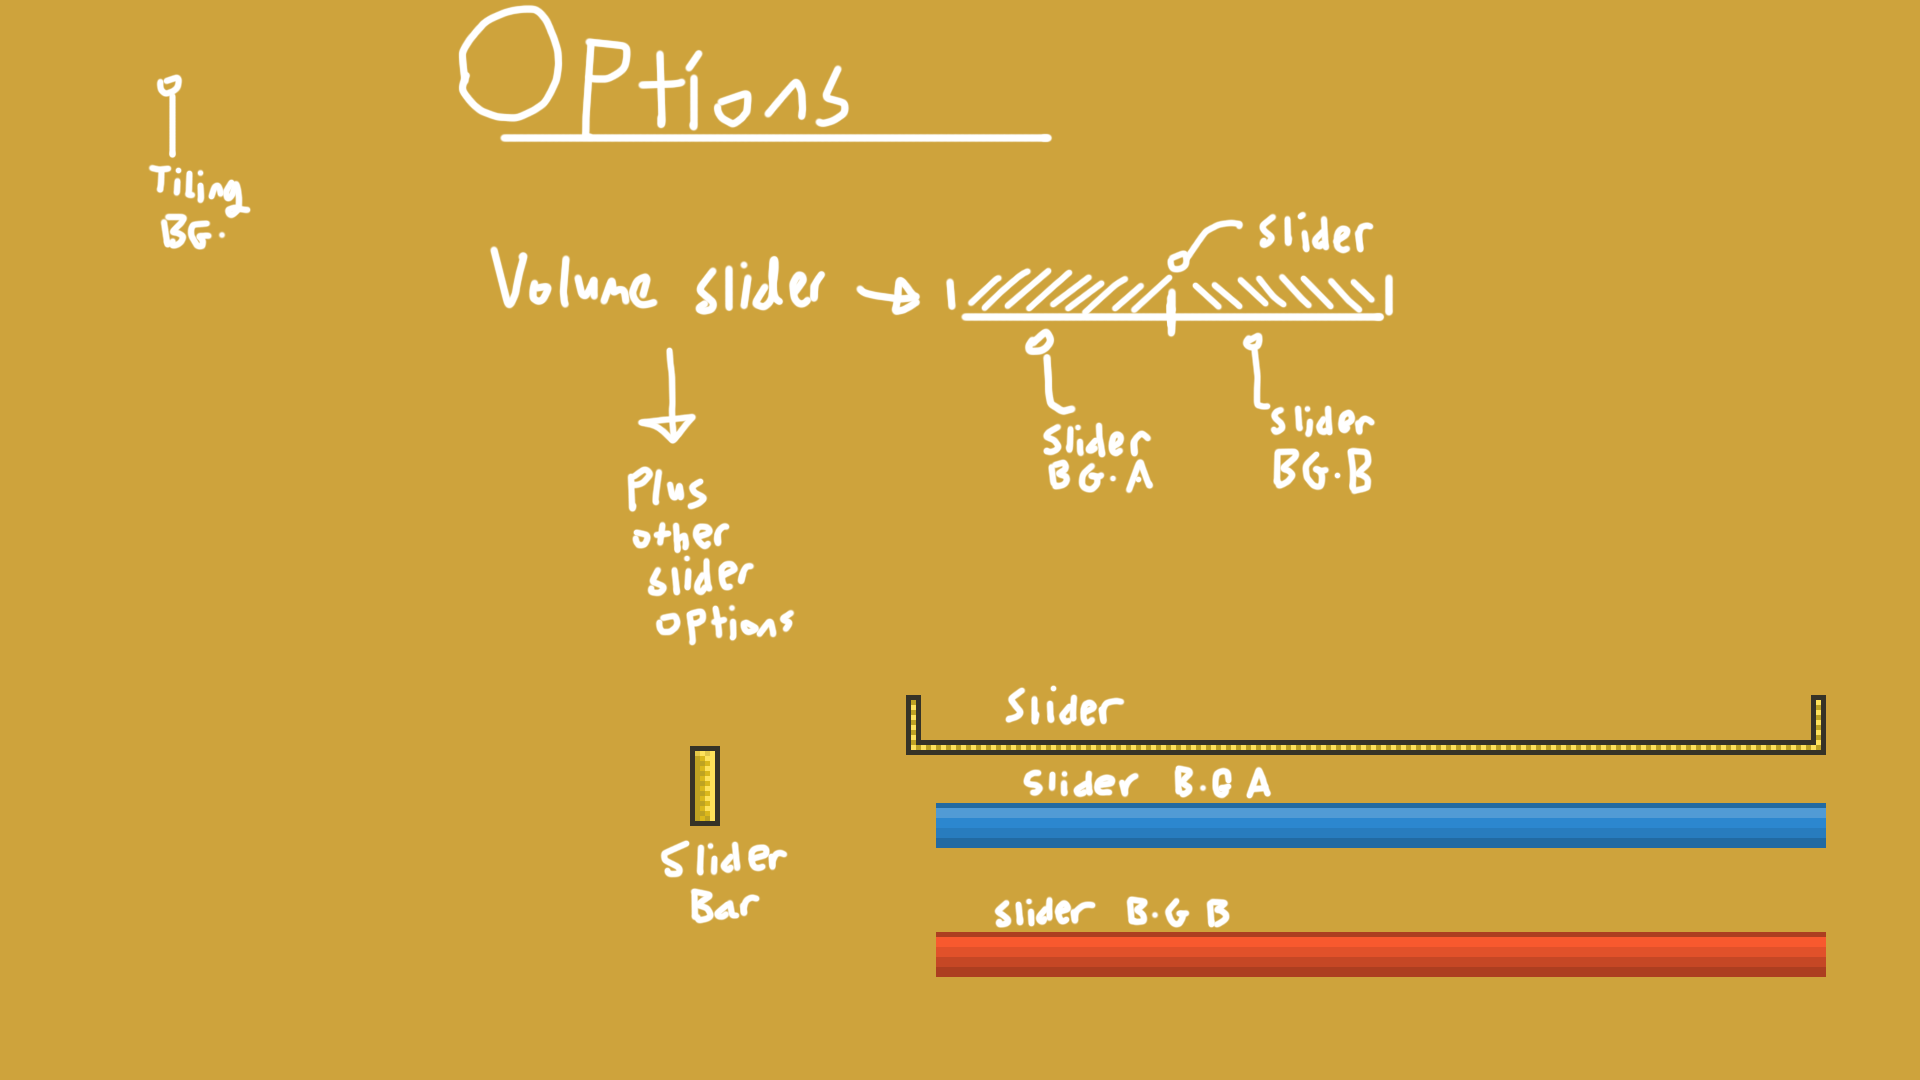 Options
Tiling
BG.
Volume slider
slider
slider
BG.A
slider
BG.B
Plus
other
slider
options
Slider
Slider B.G A
Slider
Bar
slider B.G B